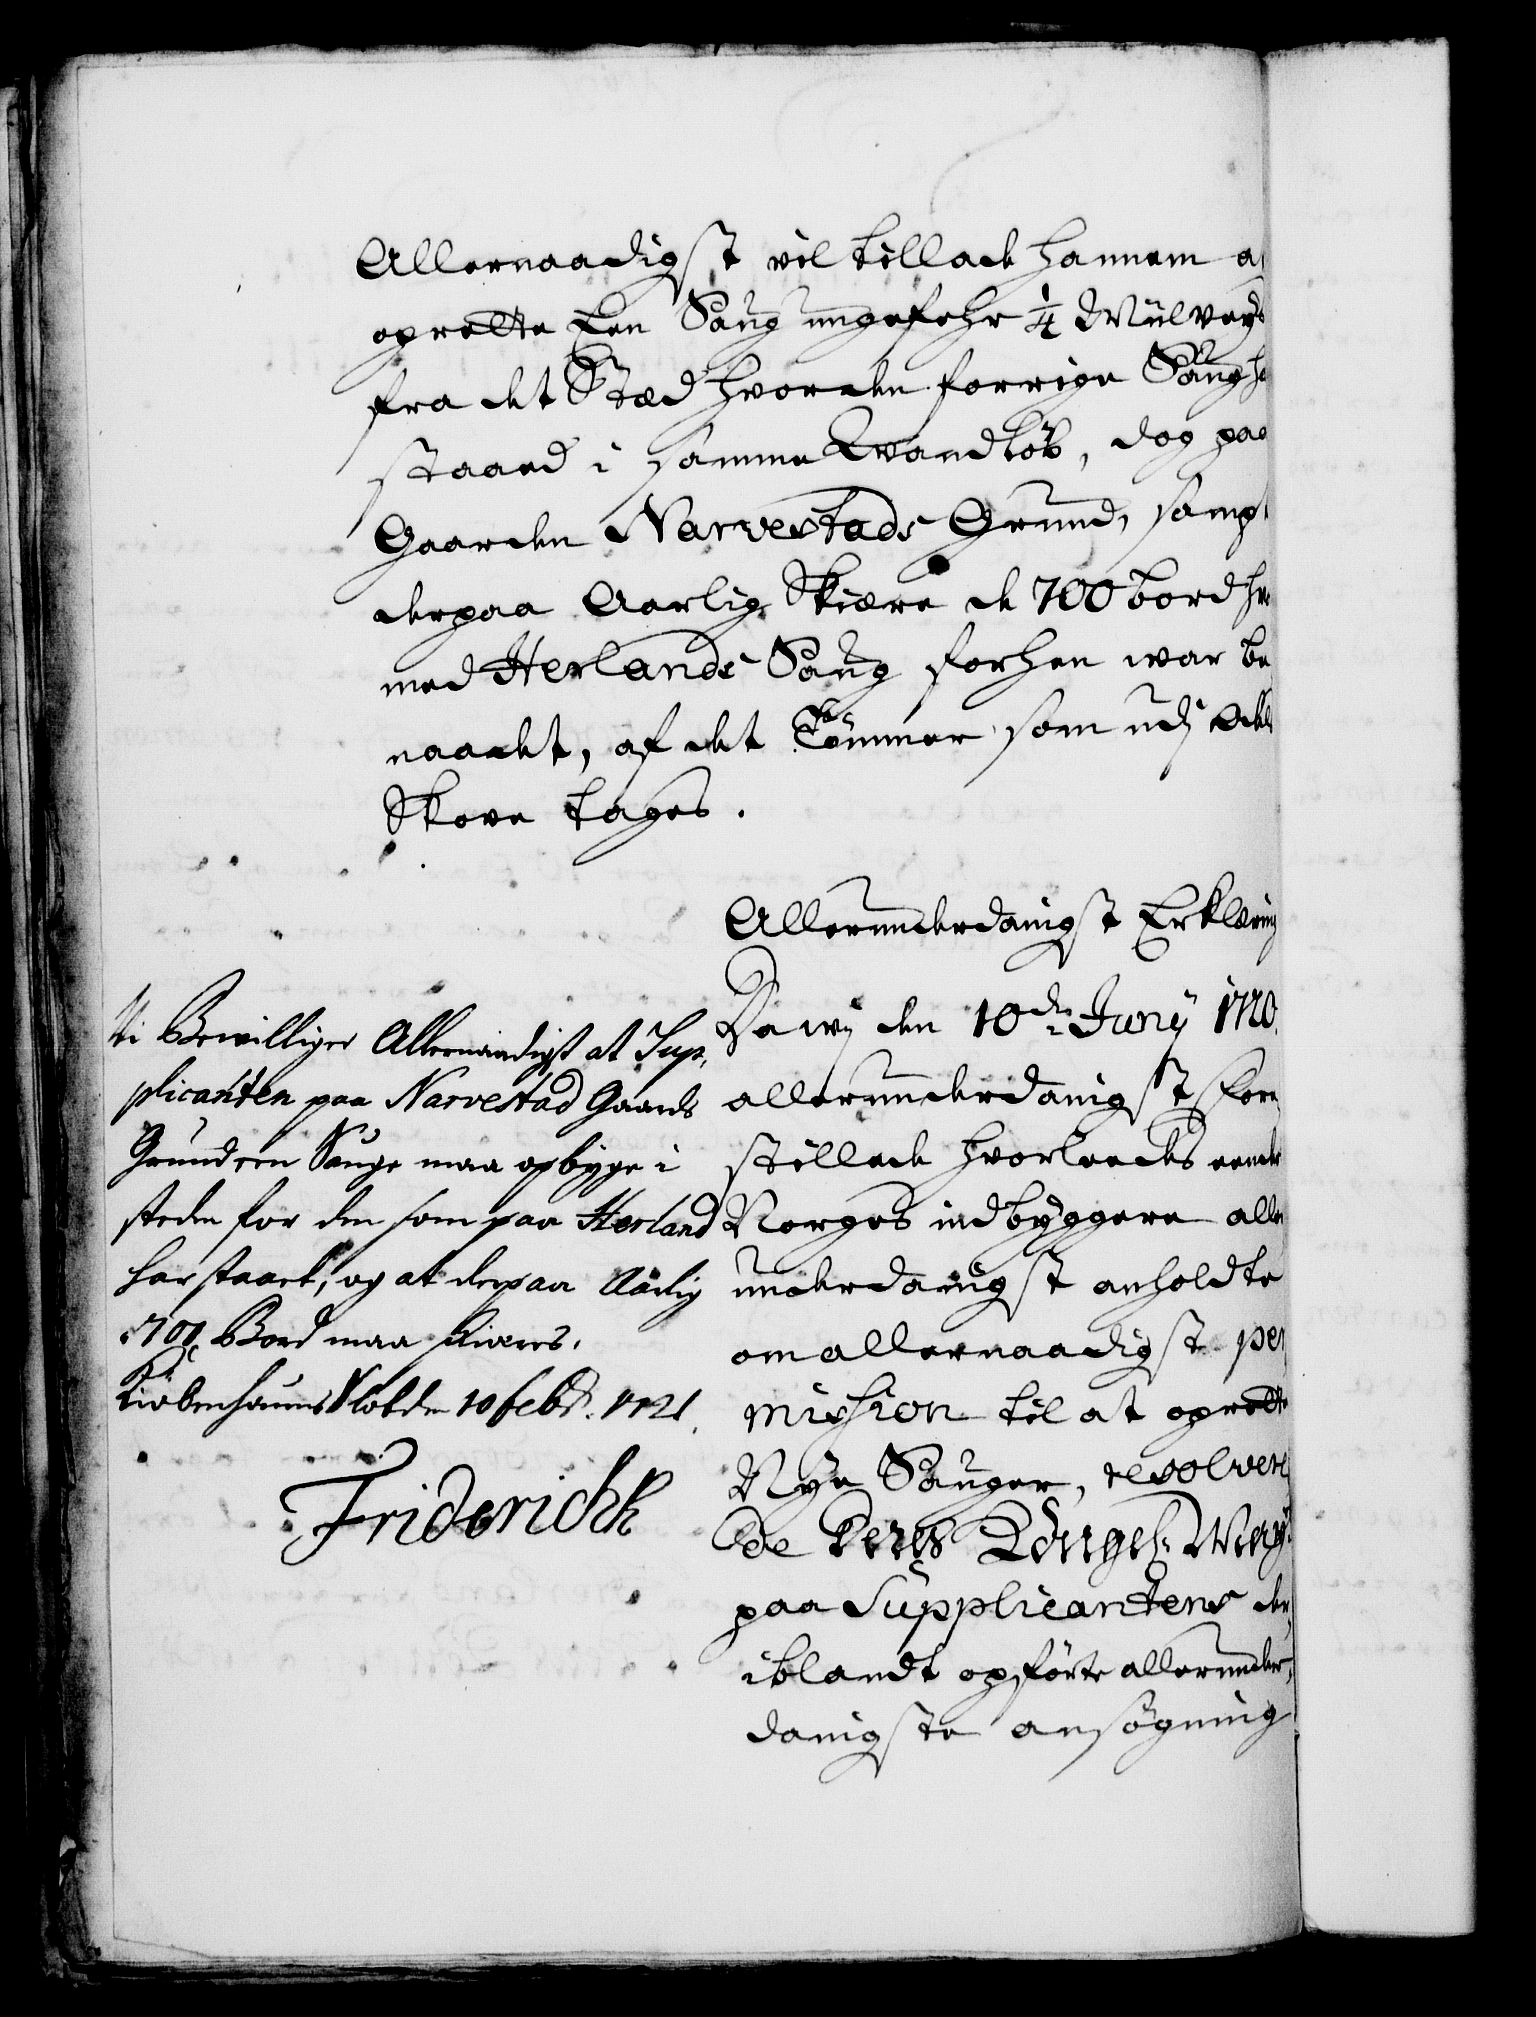 Allernaadigst vil tillade hannem a
oprette Een Saug ungefehr 1/4 Miilveys
fra det Stæd hvor den forrige Saug ha
staaed i samme Vandløb, dog paa
Gaarden Narvestads Grund, sampt
derpaa Aarlig Skiære de 700 bord hvo
med Herlands Saug forhen war be
naadet, af det Tømmer som udj
Skove tages.
Allerunderdanigst Erklæring
Da wj den 10de Junij 1720.
allerunderdanigst fore
stillede hvorleedes eendeel
Norges indbyggere aller
underdanigst anholdte
om allernaadigst per
mission til at oprette
Nye Sauger, resolvere
de Deres Kongel: May:
paa Supplicantens der
iblandt opførte allerunder,
danigste ansøgning
Vi Bevilliger Allernaadigst at Sup,
plicanten paa Narvestad Gaards
Grund een Sauge maa opbyge i
steden for den som paa Herland
har staaet, og at derpaa Aarlig
700 Bord maa skiæres.
Kiøbenhauns Slot den 10 febr. 1721.
Friderich R